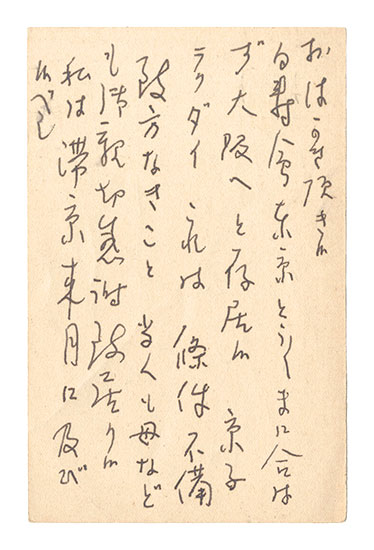 おはがき頂き候
白寿会東京とう〱まに合は
ず大阪へと存居候 京子
ラクダイ これは 條件不備
致方なきこと 当人も母など
も御親切感謝致居り候
私は滞京来月に及び
候べし